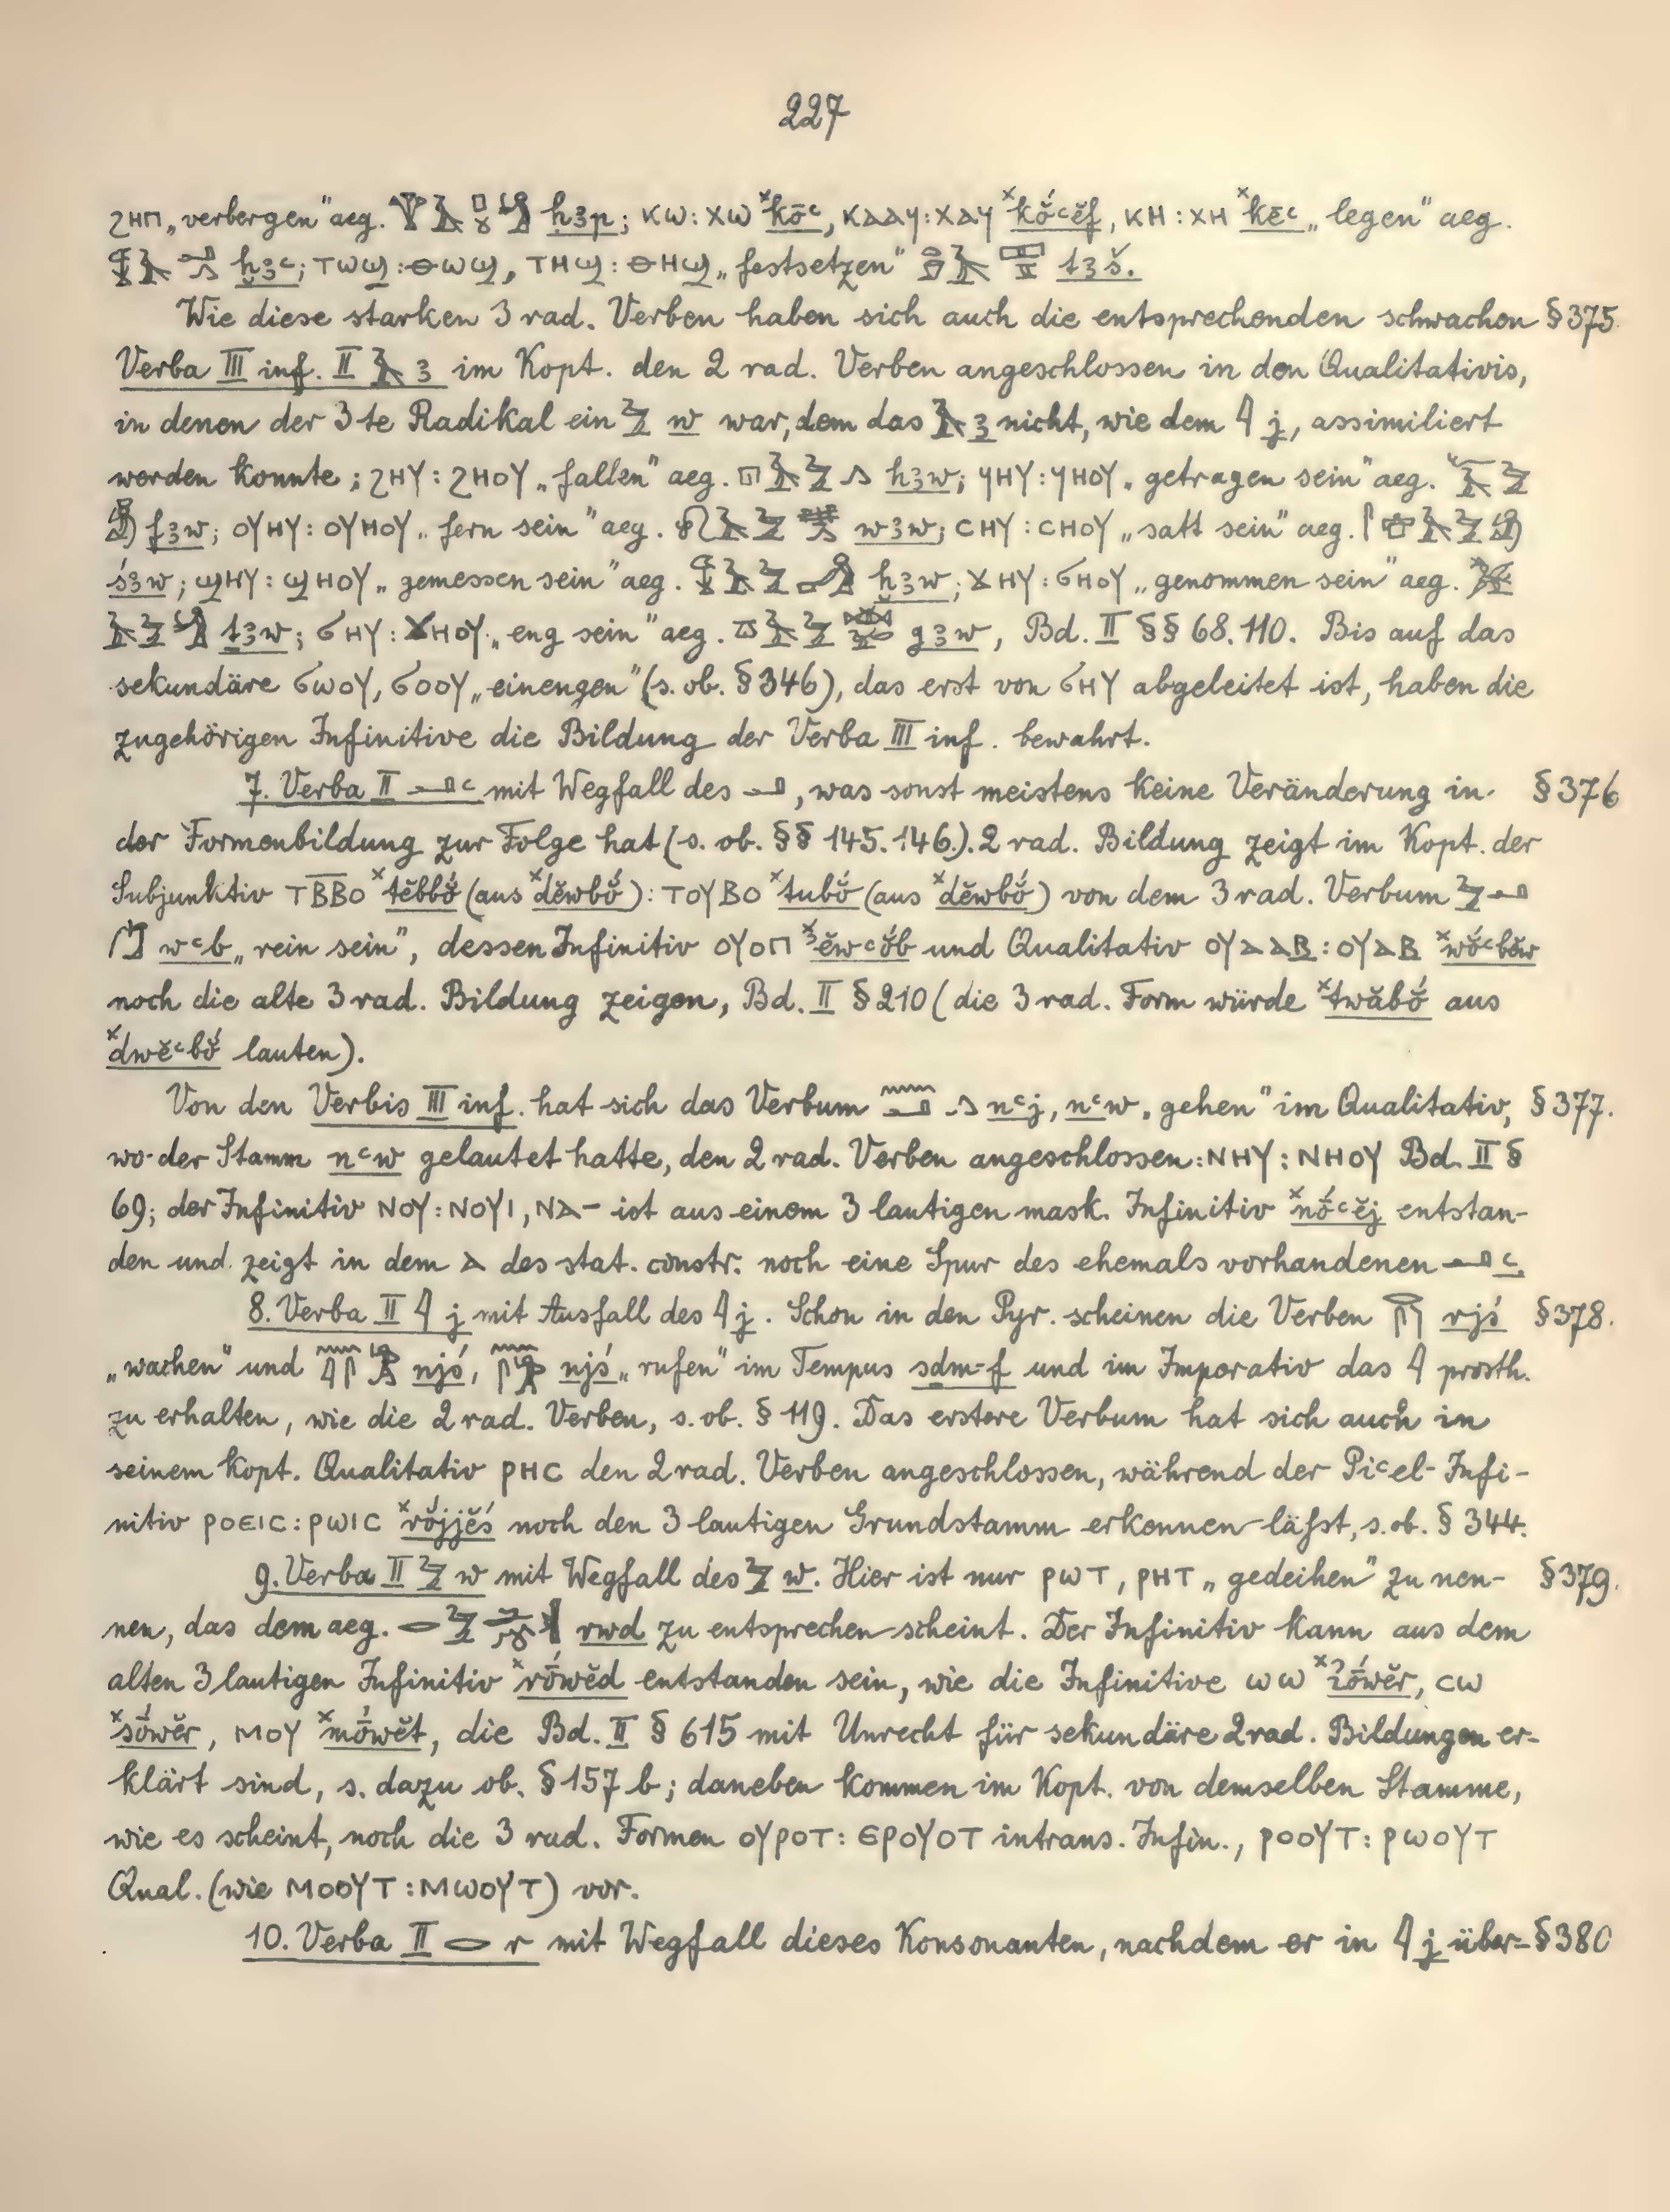 227
ϩⲏⲡ „verbergen" aeg. ḥꜣp; ⲕⲱ: ⲭⲱ ˣkōꜥ, ⲕⲁⲁϥ: ⲭⲁϥ ˣkŏ́ꜥĕf, ⲕⲏ: ⲭⲏ ˣkēꜥ „legen" aeg.
ḫꜣꜥ; ⲧⲱϣ: ⲑⲱϣ, ⲧⲏϣ: ⲑⲏϣ „festsetzen" tꜣš.
Wie diese starken 3 rad. Verben haben sich auch die entsprechenden schwachen § 375.
Verba III inf. II ꜣ im Kopt. den 2 rad. Verben angeschlossen in den Qualitativis,
in denen der 3te Radikal ein w war, dem das ꜣ nicht, wie dem j, assimiliert
werden konnte; ϩⲏⲩ: ϩⲏⲟⲩ „fallen" aeg. hꜣw; ϥⲏⲩ: ϥⲏⲟⲩ „getragen sein" aeg.
fꜣw; ⲟⲩⲏⲩ: ⲟⲩⲏⲟⲩ „fern sein" aeg. wꜣw; ⲥⲏⲩ: ⲥⲏⲟⲩ „satt sein" aeg.
śꜣw; ϣⲏⲩ: ϣⲏⲟⲩ „gemessen sein" aeg. ḫꜣw; ϫⲏⲩ: ϭⲏⲟⲩ „genommen sein" aeg.
ṯꜣw; ϭⲏⲩ: ϫⲏⲟⲩ „eng sein" aeg. gꜣw, Bd. II §§ 68. 110. Bis auf das
sekundäre ϭⲱⲟⲩ, ϭⲟⲟⲩ „einengen" (s. ob. § 346), das erst von ϭⲏⲩ abgeleitet ist, haben die
zugehörigen Infinitive die Bildung der Verba III inf. bewahrt.
7. Verba II ꜥ mit Wegfall des , was sonst meistens keine Veränderung in § 376
der Formenbildung zur Folge hat (s. ob. §§ 145. 146). 2 rad. Bildung zeigt im Kopt. der
Subjunktiv ⲧⲃ̅ⲃ̅ⲟ ˣtĕbbŏ́ (aus ˣdĕwbŏ́): ⲧⲟⲩⲃⲟ ˣtubŏ́ (aus ˣdĕwbŏ́) von dem 3 rad. Verbum
wꜥb „rein sein", dessen Infinitiv ⲟⲩⲟⲡ ˣĕwꜥŏ́b und Qualitativ ⲟⲩⲁⲁⲃ: ⲟⲩⲁⲃ ˣwŏ́ꜥbĕw
noch die alte 3 rad. Bildung zeigen, Bd. II § 210 (die 3 rad. Form würde ˣtwăbŏ́ aus
ˣdwĕꜥbŏ́ lauten).
Von den Verbis III inf. hat sich das Verbum nꜥj, nꜥw „gehen" im Qualitativ, § 377.
wo der Stamm nꜥw gelautet hatte, den 2 rad. Verben angeschlossen: ⲛⲏⲩ: ⲛⲏⲟⲩ Bd. II §
69; der Infinitiv ⲛⲟⲩ: ⲛⲟⲩⲓ, ⲛⲁ- ist aus einem 3 lautigen mask. Infinitiv ˣnṓꜥĕj entstan-
den und zeigt in dem ⲁ des stat. constr. noch eine Spur des ehemals vorhandenen ꜥ.
8. Verba II j mit Ausfall des j. Schon in den Pyr. scheinen die Verben rjś § 378.
„wachen" und njś, njś „rufen" im Tempus sḏm-f und im Imperativ das prosth.
zu erhalten, wie die 2 rad. Verben, s. ob. § 119. Das erstere Verbum hat sich auch in
seinem kopt. Qualitativ ⲣⲏⲥ den 2 rad. Verben angeschlossen, während der Piꜥel-Infi-
nitiv ⲣⲟⲉⲓⲥ: ⲣⲱⲓⲥ ˣrŏ́jjĕś noch den 3 lautigen Grundstamm erkennen läßt, s. ob. § 344.
9. Verba II w mit Wegfall des w. Hier ist nur ⲣⲱⲧ, ⲣⲏⲧ „gedeihen" zu nen- § 379.
nen, das dem aeg. rwd zu entsprechen scheint. Der Infinitiv kann aus dem
alten 3 lautigen Infinitiv ˣrṓwĕd entstanden sein, wie die Infinitive ⲱⲱ ˣꜣṓwĕr, ⲥⲱ
ˣsṓwĕr, ⲙⲟⲩ ˣmṓwĕt, die Bd. II § 615 mit Unrecht für sekundäre 2 rad. Bildungen er-
klärt sind, s. dazu ob. § 157 b; daneben kommen im Kopt. von demselben Stamme,
wie es scheint, noch die 3 rad. Formen ⲟⲩⲣⲟⲧ: ⲉⲣⲟⲩⲟⲧ intrans. Infin., ⲣⲟⲟⲩⲧ: ⲣⲱⲟⲩⲧ
Qual. (wie ⲙⲟⲟⲩⲧ: ⲙⲱⲟⲩⲧ) vor.
10. Verba II r mit Wegfall dieses Konsonanten, nachdem er in j über- § 380